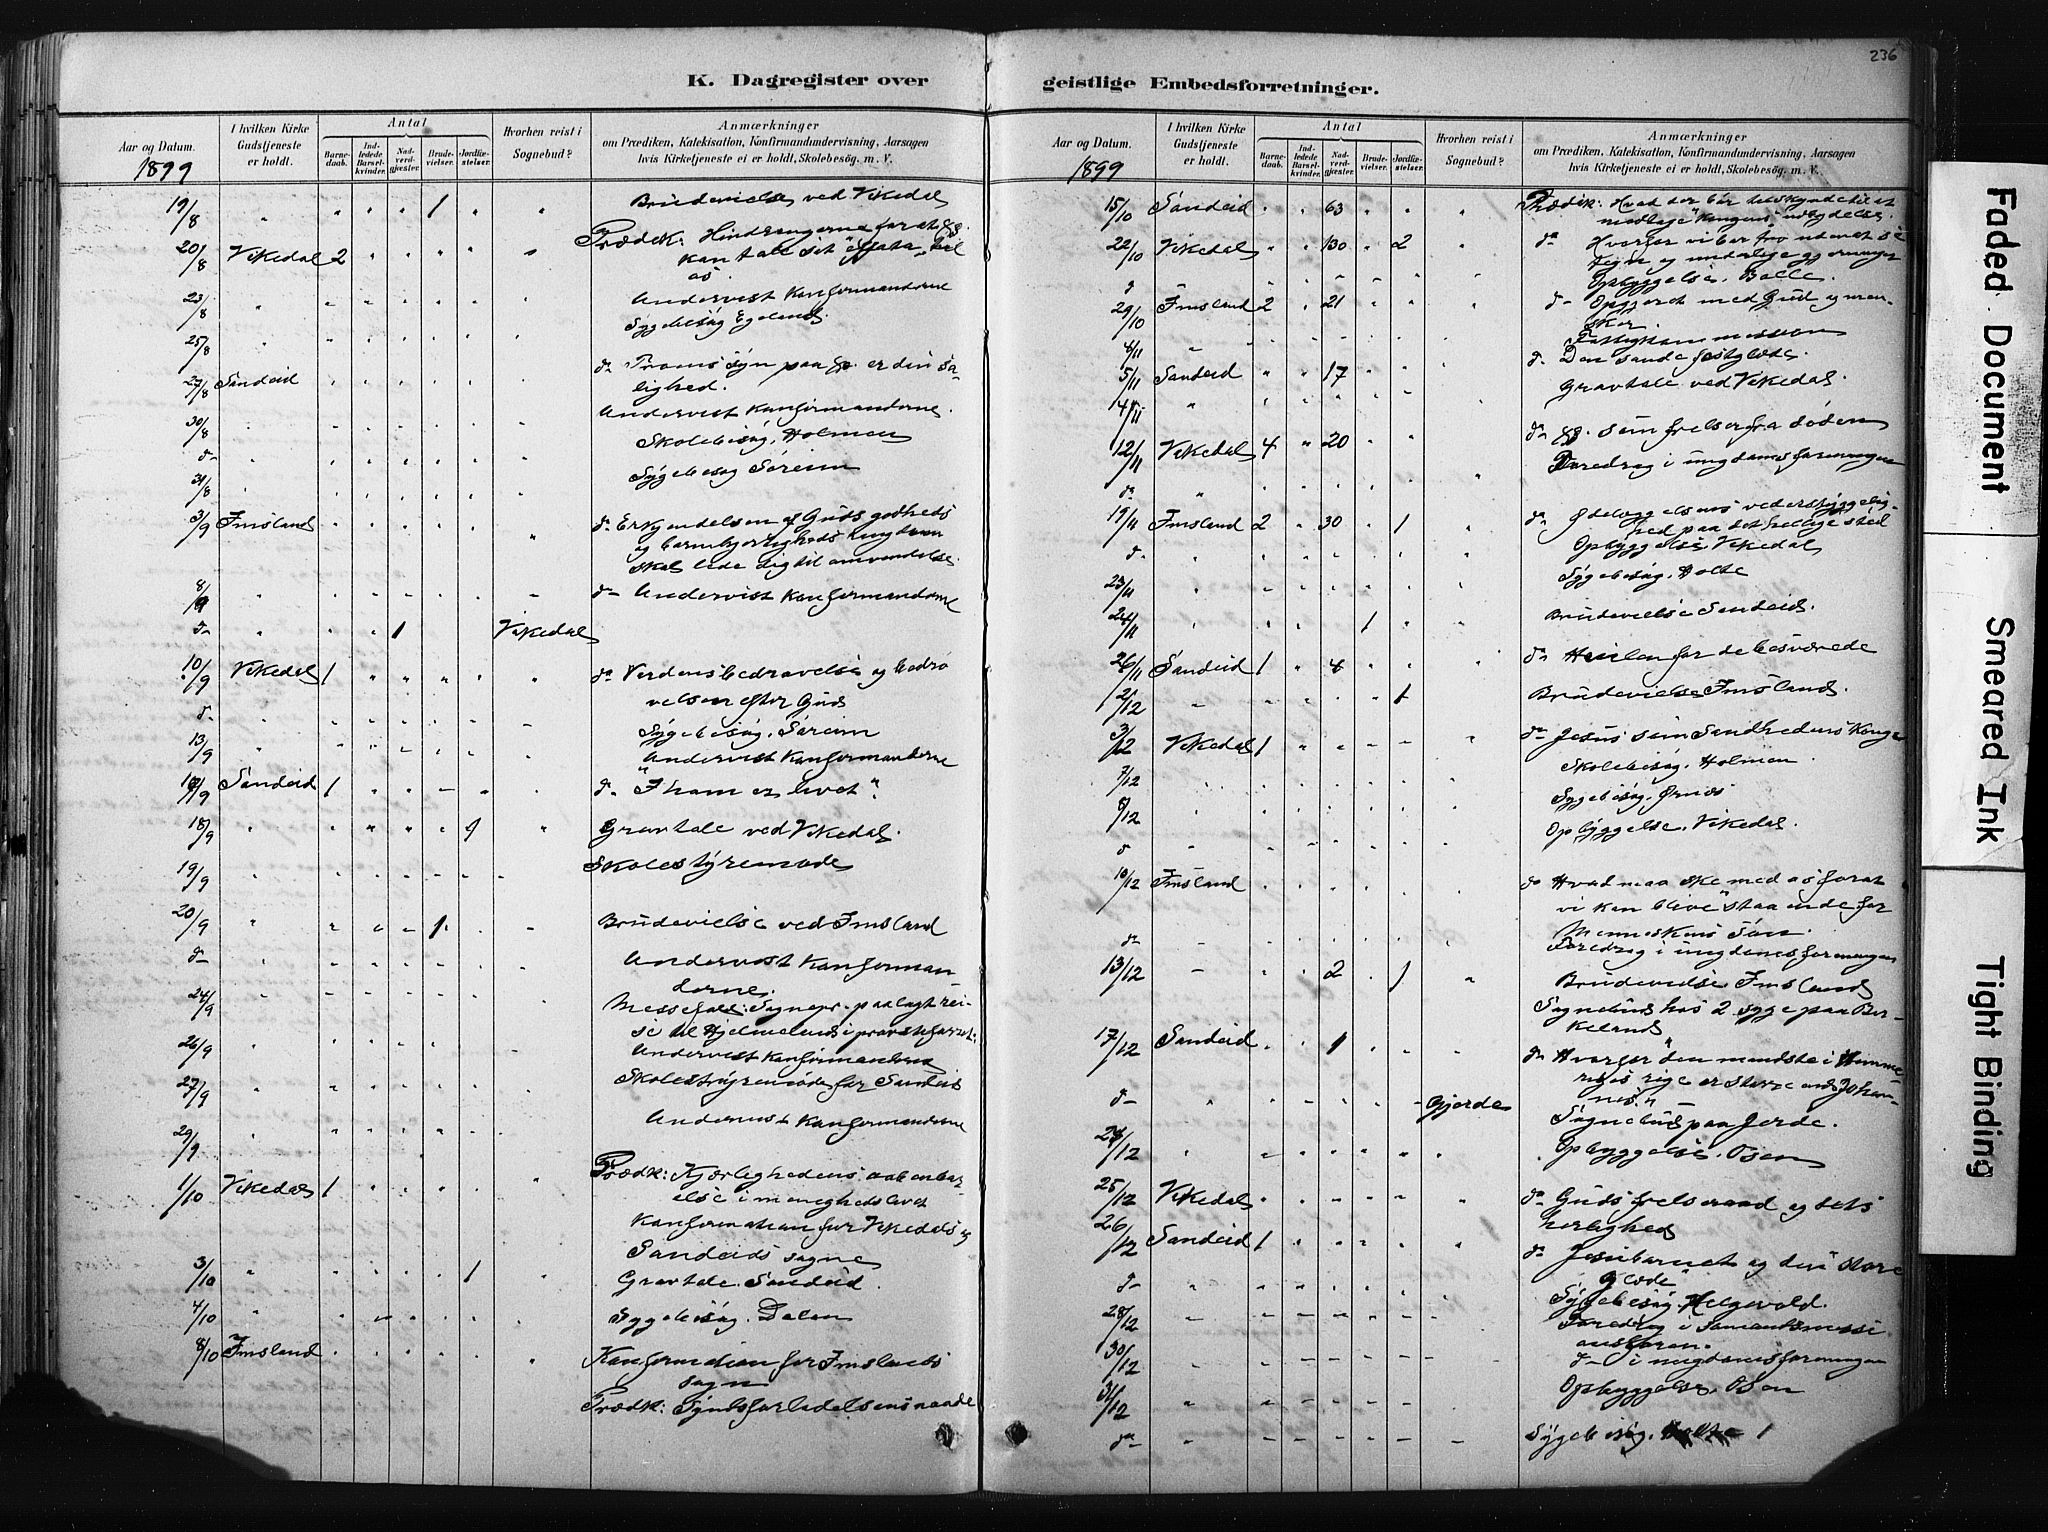 236
K. Dagregister over
geistlige Embedsforretninger.
Aar og Datum.
I hvilken Kirke Gudstjeneste er holdt.
Antal
Barnedaab.
Indledede Barselkvinder.
Nadverdgjester.
Brudevielser.
Jordfæstelser.
Hvorhen reist i Sognebud?
Anmærkninger
om Prædiken, Katekisation, Konfirmandundervisning, Aarsagen
hvis Kirketjeneste ei er holdt, Skolebesøg. m. V.
1899
19/8 " " " " 1 " " Brudevielse ved Vikedal
20/8 Vikedal 2 " " " " " Prædk: Hindringerne for at
kan tale sit "effata" til
os.
23/8 " Undervist Konfirmanderne
25/8 " Sygebesøg Egeland.
27/8 Sandeid d° Troens syn paa er din sa-
lighed.
30/8 Undervist Konfirmanderne.
d° Skolebesøg, Holmen
31/8 Sygebesøg Søreim
3/9 Imsland d° Erkjendelsen af Guds godheds
og barmhjertigheds rigdom
skal lede dig til omvendelse.
8/9 d° Undervist Konfirmanderne
d° " " " 1 Vikedal
10/9 Vikedal 1 " " " " " d° Verdens bedrøvelse og bedrø
velsen efter Gud
d° Sygebesøg, Søreim
13/9 Undervist Konfirmanderne
17/9 Sandeid 1 " " " " d° "I ham er livet".
18/9 Gravtale ved Vikedal.
19/9 Skolestyremøde
20/9 " " " " 1 " " Brudevielse ved Imsland
d° Undervist Konfirman
derne.
24/9 Messefald: Sognepr. paalagt rei-
se til Hjelmeland i provsteforret:
26/9 Undervist Konfirmanderne
27/9 Skolestyremøde for Sandeid
29/9 Undervist Konfirmanderne
1/10 Vikedal 1 " " " " Prædk: Kjærlighedens aabenba-
relse i menighedslivet
Konfirmation for Vikedals og
Sandeids sogne
3/10 " " " " " 1 " Gravtale. Sandeid.
4/10 Sygebesøg. Dalen
8/10 Imsland Konfirmation for Imslands
sogn
Prædk: Syndsforladelsens naade
Aar og Datum.
I hvilken Kirke Gudstjeneste er holdt.
Antal
Barnedaab.
Indledede Barselkvinder.
Nadverdgjester.
Brudevielser.
Jordfæstelser.
Hvorhen reist i Sognebud?
Anmærkninger
om Prædiken, Katekisation, Konfirmandundervisning, Aarsagen
hvis Kirketjeneste ei er holdt, Skolebesøg. m. V.
1899
15/10 Sandeid " " 63 " " " Prædik: Hvad der bør tilskynde til at
modtage "Kongens" indbydelse.
22/10 Vikedal " " 130 " 2 " d° Hvorfor vi bør tro uden at se
tegn og underlige gjerninger
Opbyggelse. Balle.
29/10 Imsland 2 " 21 " " " d° Opgjøret med Gud og men-
sker.
4/11 Fattigkommission
5/11 Sandeid " " 17 " " d° Den sande festglæde.
Gravtale ved Vikedal.
12/11 Vikedal 4 " 20 " " d° som frelser fra døden
d° Foredrag i ungdomsforeningen
19/11 Imsland 2 " 30 " 1 " d° Ødelæggelsens vederstyggelig-
hed paa det hellige sted
d° Opbyggelse Vikedal
23/11 Sygebesøg. Holte
24/11 " " " " 1 " " Brudevielse Sandeid.
26/11 Sandeid 1 " 4 " " " d° Hvilen for de besværede
2/12 Brudevielse Imsland.
3/12 Vikedal 1 " " " " d° Jesus som Sandhedens Konge
7/12 Skolebesøg. Holmen.
8/12 Sygebesøg. Ørnes
d° Opbyggelse. Vikedal.
10/12 Imsland d° Hvad maa ske med os forat
vi kan blive "staaende for
Menneskens Søn.
d° Foredrag i ungdomsforeningen
13/12 " " " 2 " 1 " Brudevielse Imsland
Sognebud hos 2 syge paa Bir-
keland
17/12 Sandeid " " 1 " " " d° Hvorfor "den mindste i Himme-
riges rige er større end Johan-
nes."
d° Gjerde Sognebud paa Jerde.
24/12 Opbyggelse. Osen
25/12 Vikedal d° Guds frelsesraad og dets
herlighed
26/12 Sandeid 1 " " " " d° Jesubarnet og den "store
Glæde"
d° Sygebesøg. Helgevold.
28/12 Foredrag i
30/12 d° i ungdomsforeningen
31/12 Opbyggelse. Osen
d° Sygebesøg. Holte 1
Faded Document
Smeared Ink
Tight Binding